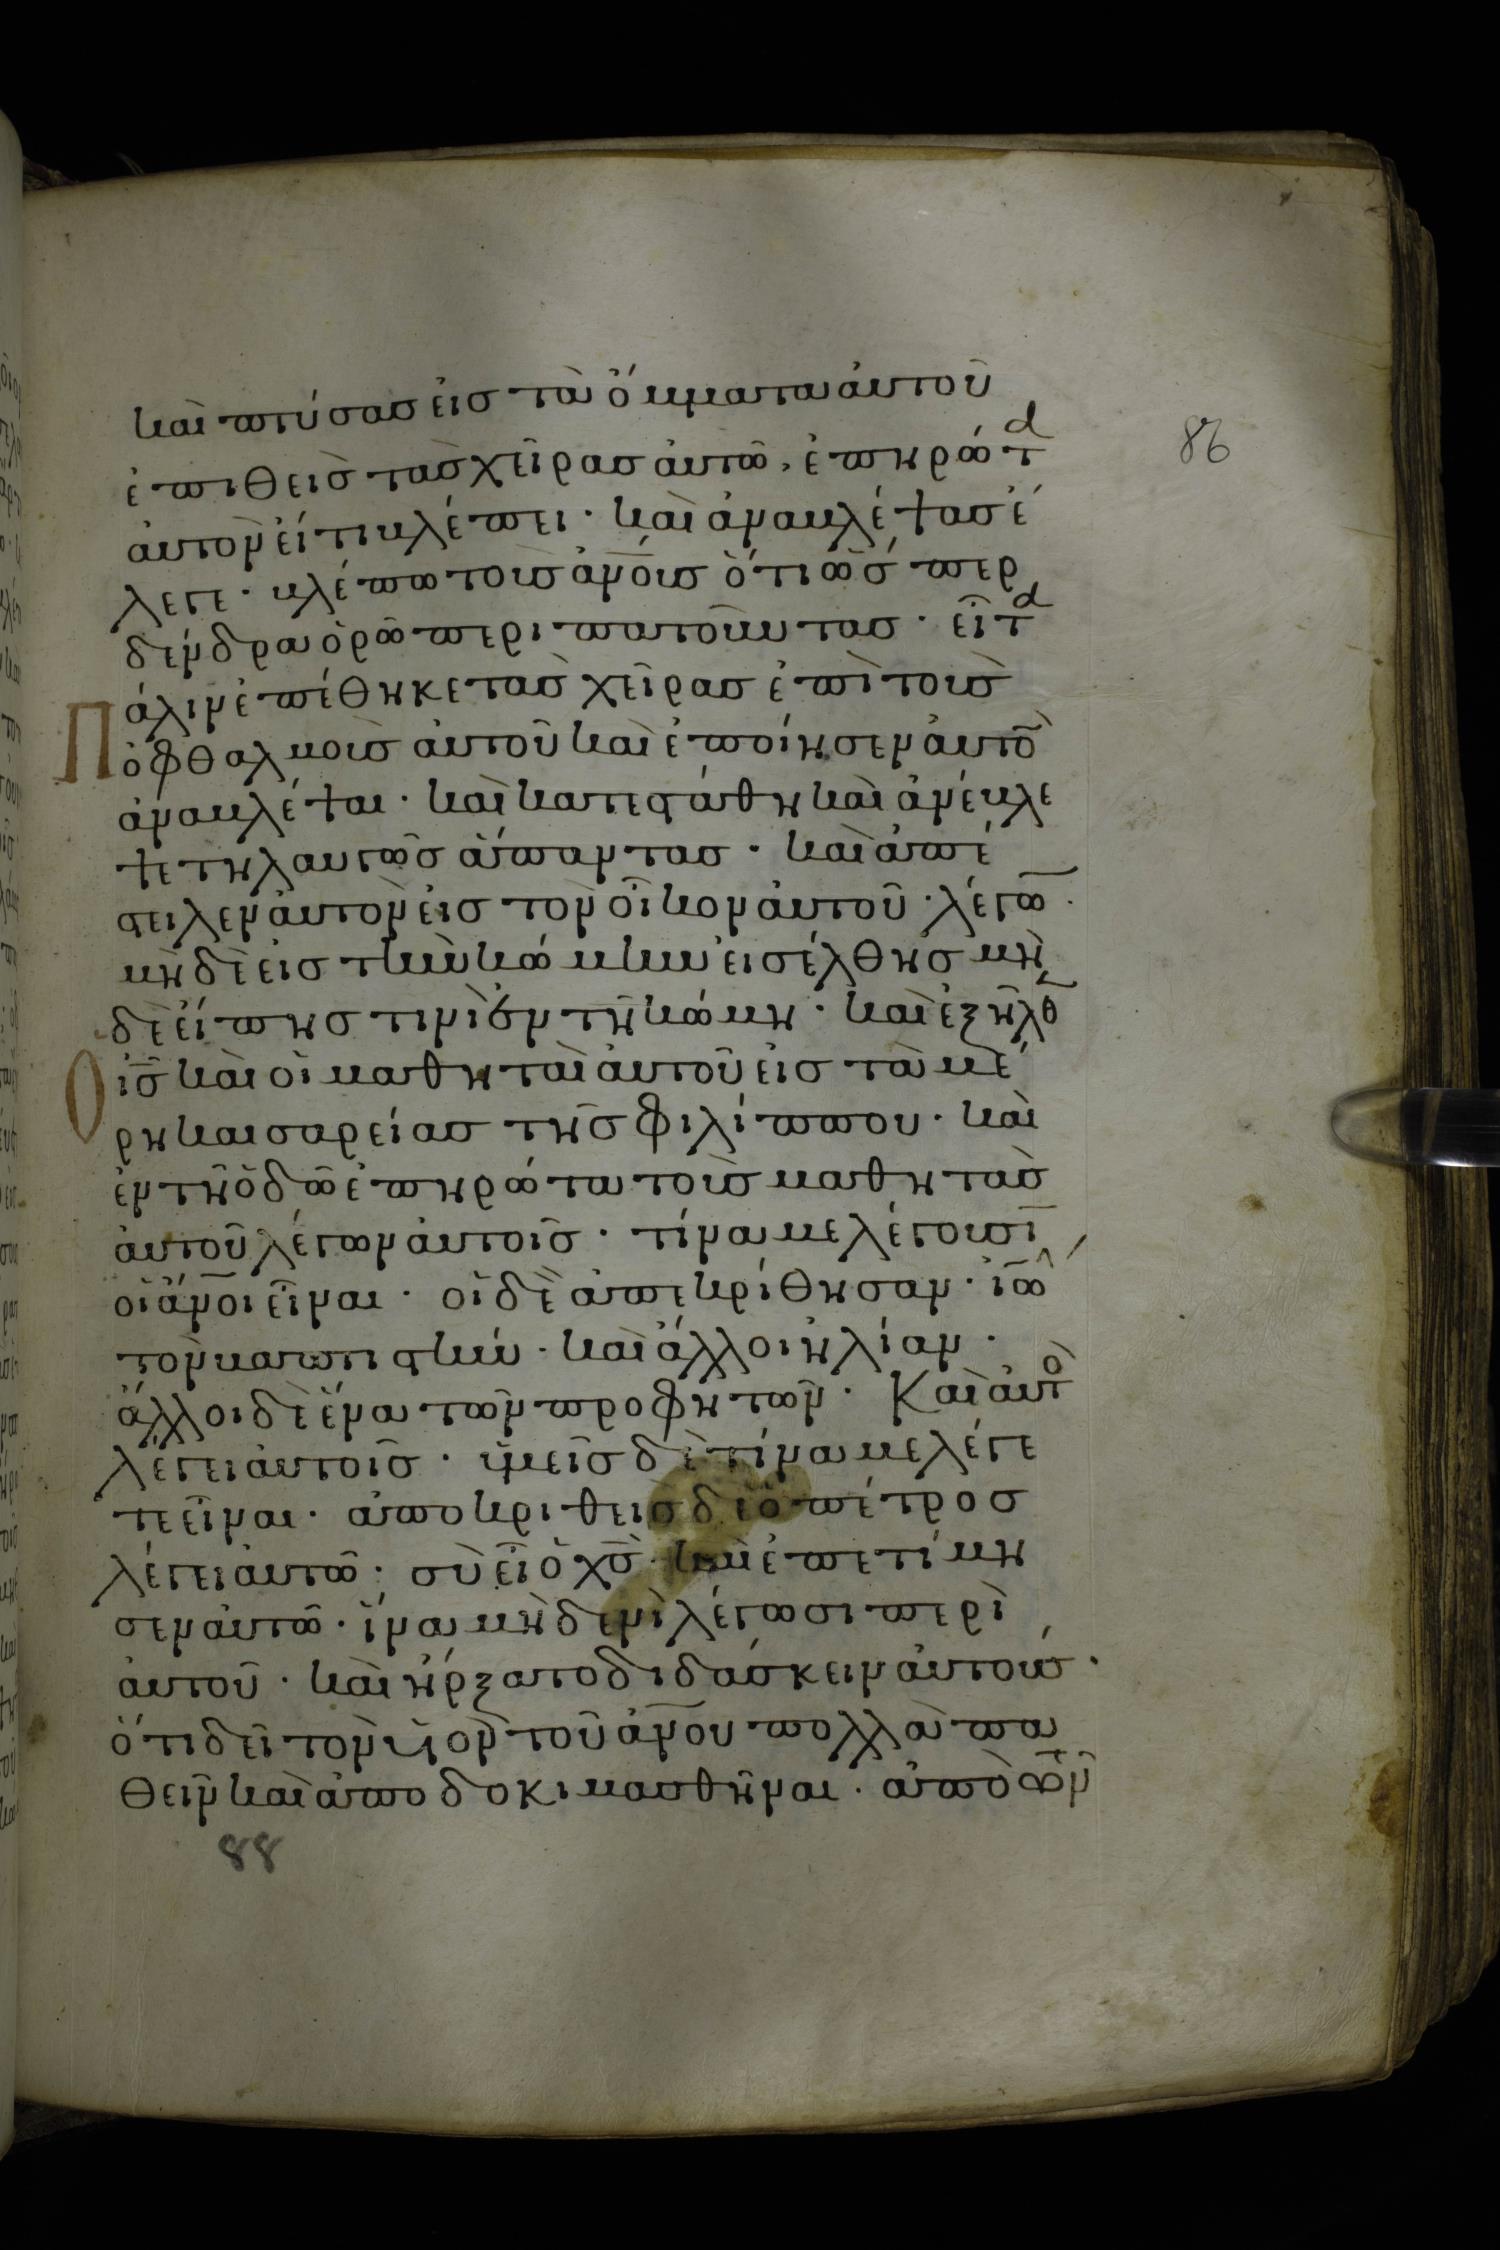 καὶ πτύσας εἰς τὰ ὄμματα αὐτοῦ
ἐπιθεὶς τὰς χεῖρας αὐτῶ, ἐπηρώτα
86
αὐτὸν εἴ τι βλέπει· καὶ ἀναβλέψας ἔ
λεγε· βλέπω τοὺς ἀν̅ους ὅτι ὥσπερ
δένδρα ὁρῶ περιπατοῦντας· εἶτα
Πάλιν ἐπέθηκε τὰς χεῖρας ἐπὶ τοὺς
ὀφθαλμοὺς αὐτοῦ καὶ ἐποίησεν αὐτὸ̅
ἀναβλέψαι· καὶ κατεστάθη καὶ ἀνέβλε
ψε τηλαυγῶς ἅπαντας· καὶ ἀπέ
στειλεν αὐτὸν εἰς τὸν οἶκον αὐτοῦ· λέγω̅·
μηδὲ εἰς τὴν κώμην εἰσέλθης μὴ
δὲ εἴπης τινὶ ἐν τῆ κώμη· καὶ ἐξῆλθ
Ὁ ι̅ς̅ καὶ οἱ μαθηταὶ αὐτοῦ εἰς τὰ μέ
ρη καισαρείας τῆς φιλίππου· καὶ
ἐν τῆ ὁδῶ ἐπηρώτα τοὺς μαθητὰς
αὐτοῦ λέγων αὐτοῖς· τίνα με λέγουσι̅
οἱ ἄν̅οι εἶναι· οἱ δὲ ἀπεκρίθησαν· ἰω̅
τὸν βαπτιστήν· καὶ ἄλλοι ἠλίαν·
ἄλλοι δὲ ἕνα τῶν προφητῶν· Καὶ αὐτὸ
λέγει αὐτοῖς· ὑμεῖς δὲ τίνα με λέγε
τε εἶναι· ἀποκριθεὶς δὲ ὁ πέτρος
λέγει αὐτῶ· σὺ εἶ ὁ χ̅ς̅· καὶ ἐπετίμη
σεν αὐτῶ· ἵνα μηδενὶ λέγωσι περὶ
αὐτοῦ· καὶ ἤρξατο διδάσκειν αὐτούς·
ὅτι δεῖ τὸν υἱὸν τοῦ ἀν̅ου πολλὰ πα
θεῖν καὶ ἀποδοκιμασθῆναι· ἀπὸ τῶν
88